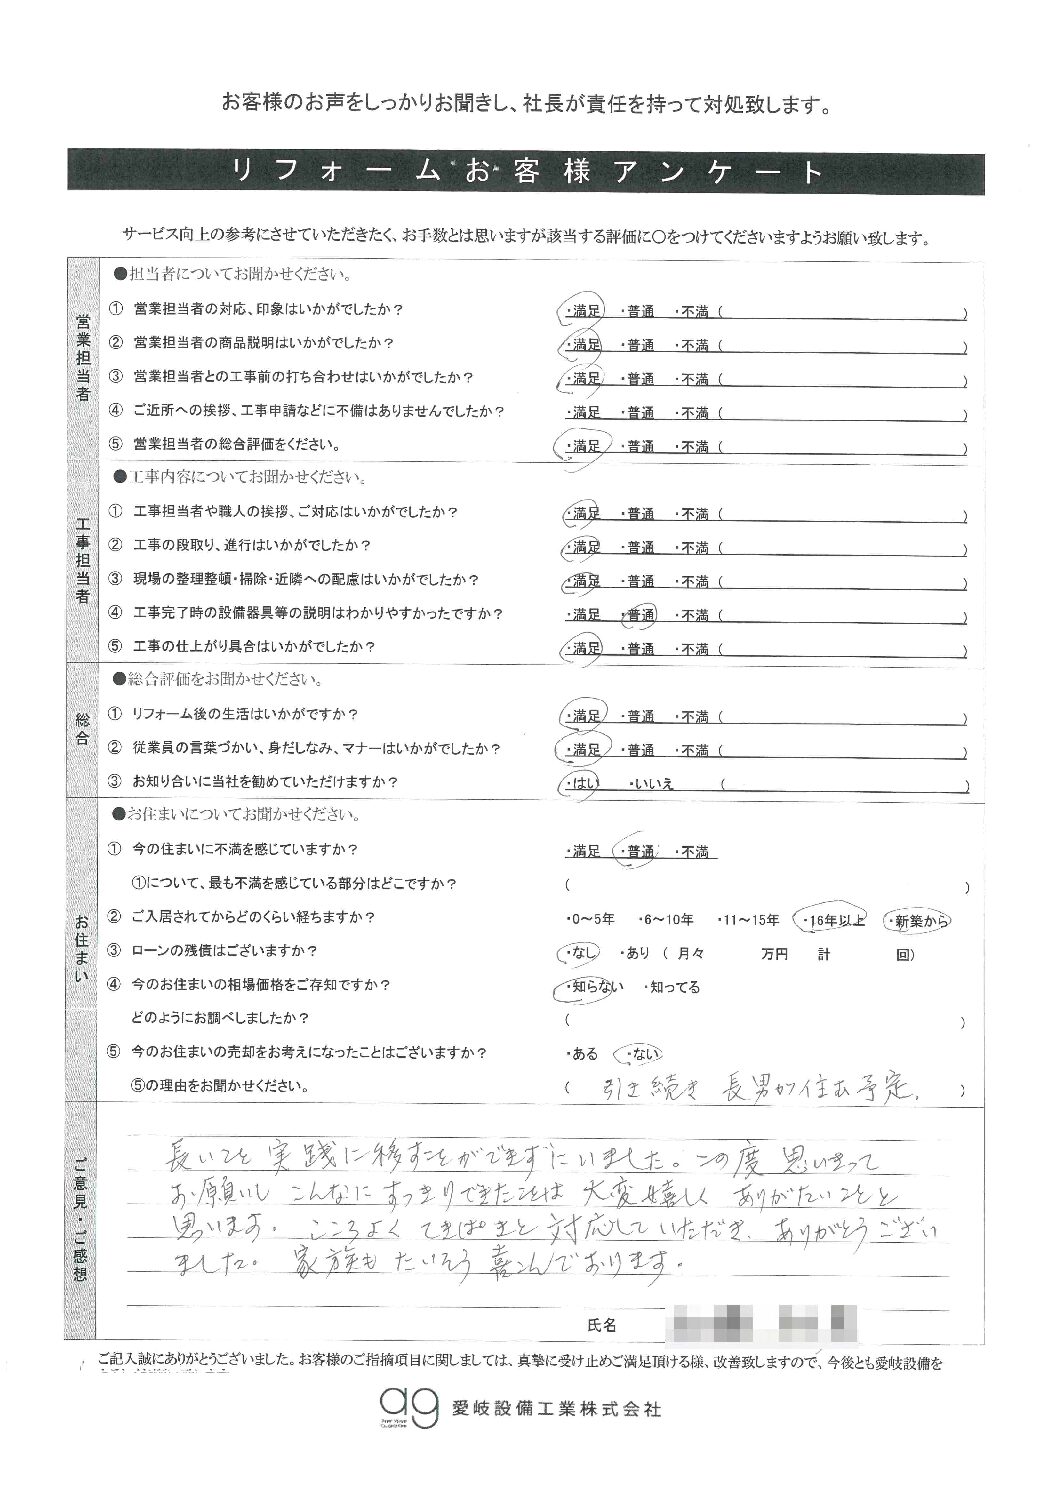 お客様のお声をしっかりお聞きし、社長が責任を持って対処致します。
リフォームお客様アンケート
サービス向上の参考にさせていただきたく、お手数とは思いますが該当する評価に○をつけてくださいますようお願い致します。
営業担当者
●担当者についてお聞かせください。
① 営業担当者の対応、印象はいかがでしたか? ・満足 ・普通 ・不満 ( )
② 営業担当者の商品説明はいかがでしたか? ・満足 ・普通 ・不満 ( )
③ 営業担当者との工事前の打ち合わせはいかがでしたか? ・満足 ・普通 ・不満 ( )
④ ご近所への挨拶、工事申請などに不備はありませんでしたか? ・満足 ・普通 ・不満 ( )
⑤ 営業担当者の総合評価をください。 ・満足 ・普通 ・不満 ( )
工事担当者
●工事内容についてお聞かせください。
① 工事担当者や職人の挨拶、ご対応はいかがでしたか? ・満足 ・普通 ・不満 ( )
② 工事の段取り、進行はいかがでしたか? ・満足 ・普通 ・不満 ( )
③ 現場の整理整頓・掃除・近隣への配慮はいかがでしたか? ・満足 ・普通 ・不満 ( )
④ 工事完了時の設備器具等の説明はわかりやすかったですか? ・満足 ・普通 ・不満 ( )
⑤ 工事の仕上がり具合はいかがでしたか? ・満足 ・普通 ・不満 ( )
総合
●総合評価をお聞かせください。
① リフォーム後の生活はいかがですか? ・満足 ・普通 ・不満 ( )
② 従業員の言葉づかい、身だしなみ、マナーはいかがでしたか? ・満足 ・普通 ・不満 ( )
③ お知り合いに当社を勧めていただけますか? ・はい ・いいえ ( )
お住まい
●お住まいについてお聞かせください。
① 今の住まいに不満を感じていますか? ・満足 ・普通 ・不満
①について、最も不満を感じている部分はどこですか? ( )
② ご入居されてからどのくらい経ちますか? ・0～5年 ・6～10年 ・11～15年 ・16年以上 ・新築から
③ ローンの残債はございますか? ・なし ・あり ( 月々 万円 計 回)
④ 今のお住まいの相場価格をご存知ですか? ・知らない ・知ってる
どのようにお調べしましたか? ( )
⑤ 今のお住まいの売却をお考えになったことはございますか? ・ある ・ない
⑤の理由をお聞かせください。 ( 引き続き 長男が住む予定. )
ご意見・ご感想
長いこと 実践に移すことができずにいました。この度 思いきって
お願いし こんなに すっきりできたことは 大変嬉しく ありがたいことと
思います。こころよく てきぱきと 対応していただき、ありがとうござい
ました。 家族も たいそう 喜こんでおります。
氏名
ご記入誠にありがとうございました。お客様のご指摘項目に関しましては、真摯に受け止めご満足頂ける様、改善致しますので、今後とも愛岐設備を
ag 愛岐設備工業株式会社